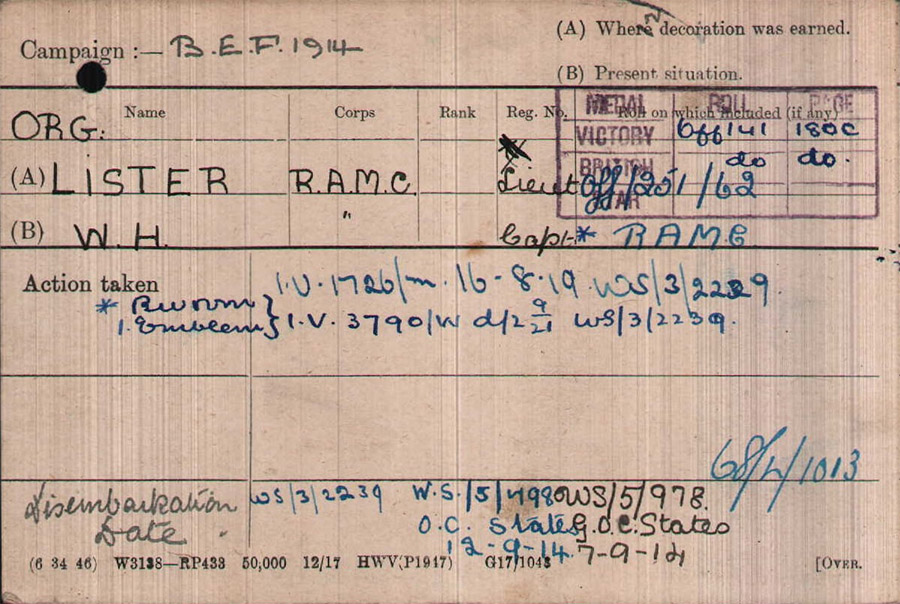 (A) Where decoration was earned.
Campaign :— B.E.F. 1914
(B) Present situation.
Name Corps Rank Reg. No. Roll on which included (if any)
MEDAL ROLL PAGE
ORG:
VICTORY Off 141 180C
BRITISH do do.
(A) LISTER R.A.M.C. Lieut Off/251/62
STAR
(B) W.H. " Capt * RAMC
Action taken I.V. 1726/m. 16-8-19 WS/3/2239
* 
1. Emblem } I.V. 3790/W d/2 9/21 WS/3/2239.
68/2/1013
Disembarkation WS/3/2239 W.S./5/ WS/5/978.
Date O.C. States G.O.C. States
12-9-14. 7-9-14
(6 34 46) W3138—RP433 50,000 12/17 HWV(P1917) G17/1043 [OVER.